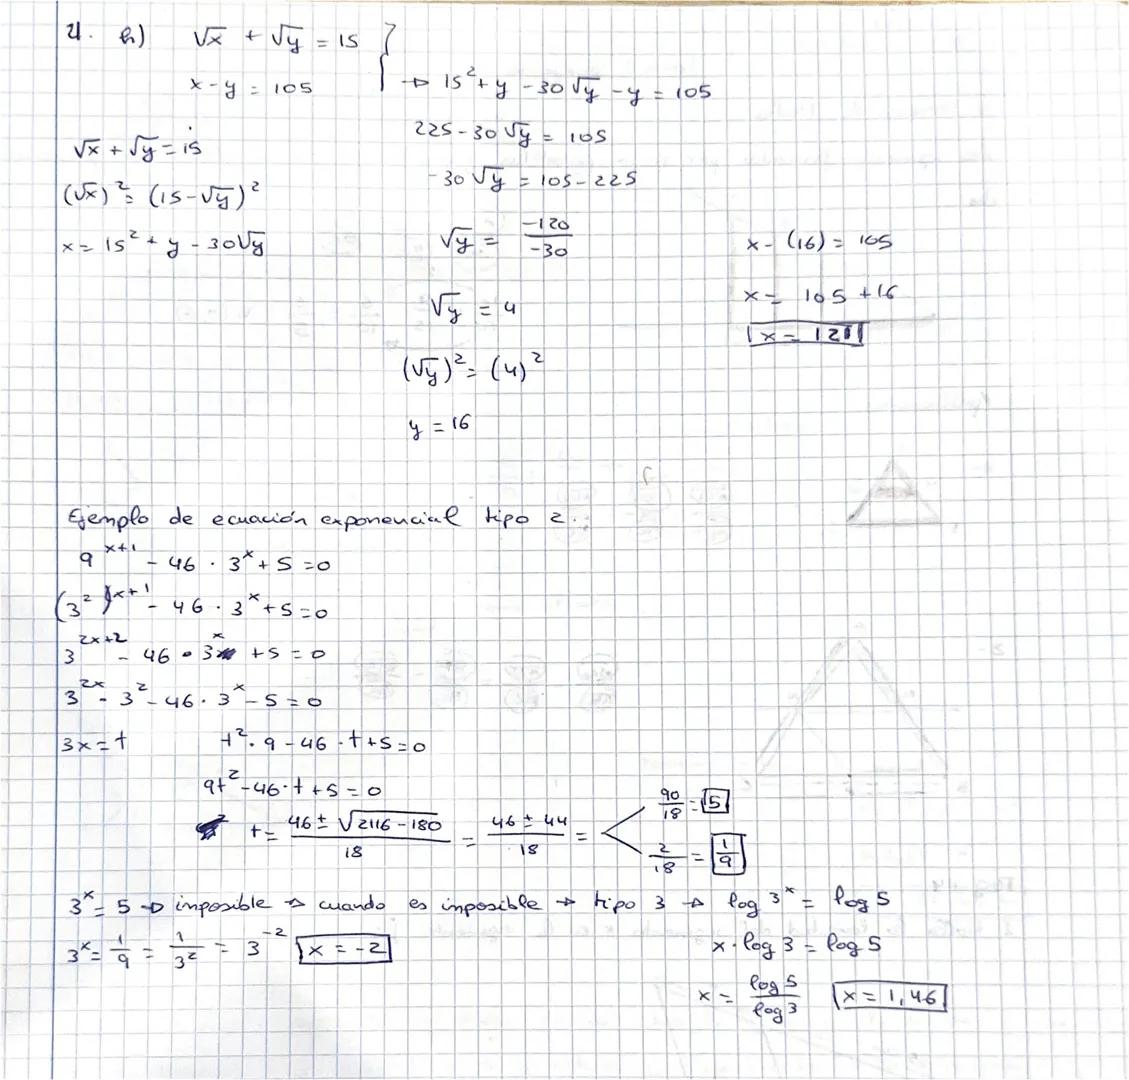 4. h) √x + √y = 15
x - y = 105
→ 15² + y - 30√y - y = 105
225 - 30√y = 105
-30√y = 105 - 225
√y = -120/-30
√y = 4
(√y)² = (4)²
y = 16
√x + √y = 15
(√x)² = (15 - √y)²
x = 15² + y - 30√y
x - (16) = 105
x = 105 + 16
x = 121
Ejemplo de ecuación exponencial tipo 2.
9^(x+1) - 46 · 3^x + 5 = 0
(3²)^(x+1) - 46 · 3^x + 5 = 0
3^(2x+2) - 46 · 3^x + 5 = 0
3^(2x) · 3² - 46 · 3^x - 5 = 0
3x = t t² · 9 - 46 · t + 5 = 0
9t² - 46 · t + 5 = 0
t = (46 ± √(2116 - 180))/18 = (46 ± 44)/18 =
90/18 = 5
2/18 = 1/9
3^x = 5 → imposible → cuando es imposible → tipo 3 → log 3^x = log 5
3^x = 1/9 = 1/3² = 3^(-2) x = -2
x · log 3 = log 5
x = log 5/log 3 x = 1,46